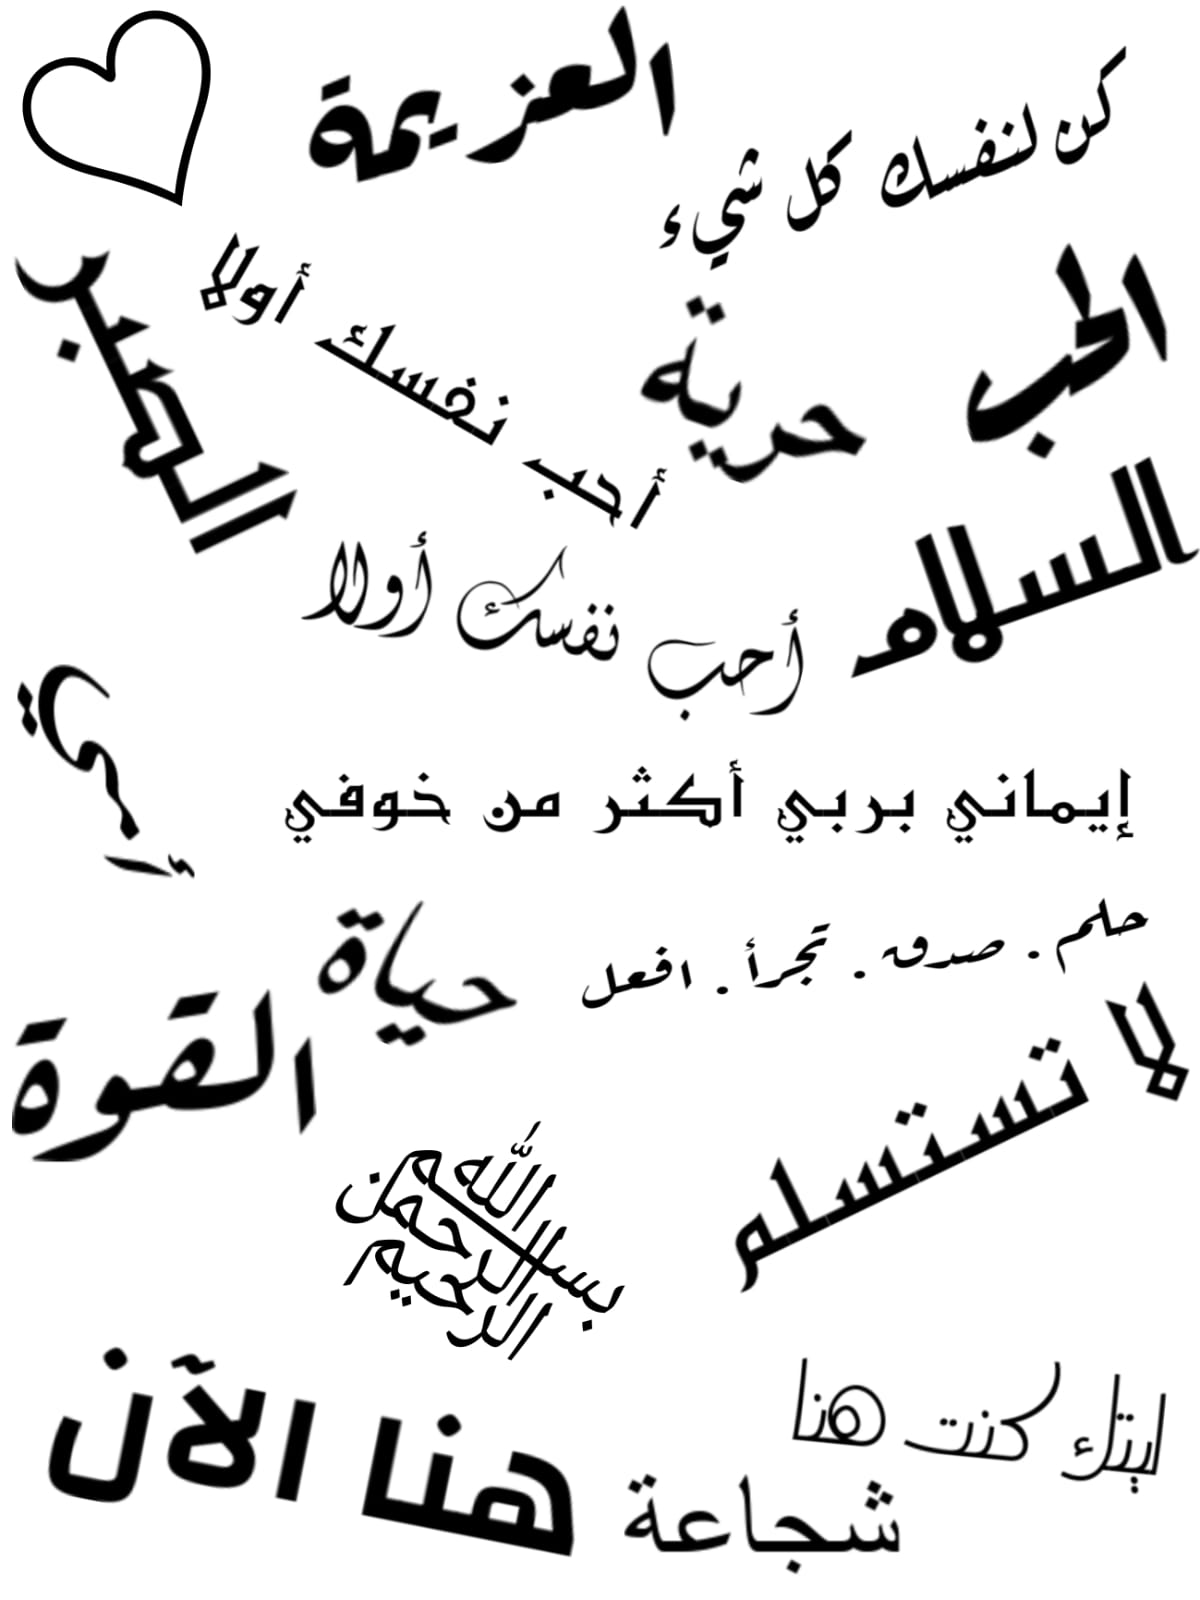 العزيمة
كن لنفسك كل شيء
أحب نفسك أولا
الصبر
حرية
الحب
السلام
أحب نفسك أولا
أمي
إيماني بربي أكثر من خوفي
حلم . صدق . تجرأ . افعل
حياة
القوة
لا تستسلم
بسم الله
الرحمن
الرحيم
ليتك كنت هنا
هنا الآن
شجاعة